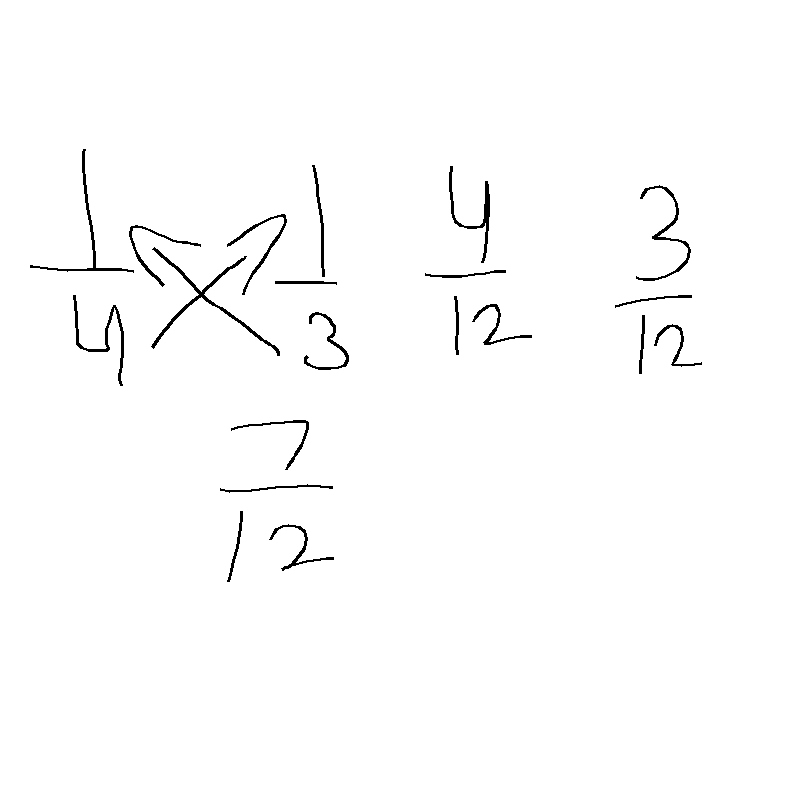 1/4 1/3 4/12 3/12
7/12